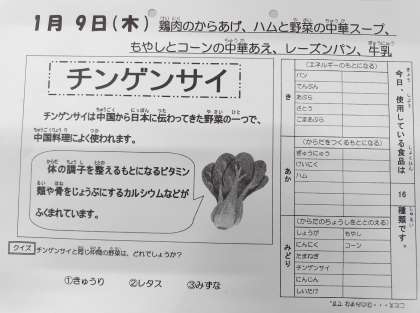 1月 9日(木) 鶏肉のからあげ、ハムと野菜の中華スープ、
もやしとコーンの中華あえ、レーズンパン、牛乳
チンゲンサイ
チンゲンサイは中国から日本に伝わってきた野菜の一つで、
中国料理によく使われます。
体の調子を整えるもとになるビタミン
類や骨をじょうぶにするカルシウムなどが
ふくまれています。
クイズ
チンゲンサイと同じ仲間の野菜は、どれでしょうか?
①きゅうり ②レタス ③みずな
今日、使用している食品は
16
種類です。
き
(エネルギーのもとになる)
パン
でんぷん
あぶら
さとう
ごまあぶら
あか
(からだをつくるもとになる)
ぎゅうにゅう
けいにく
ハム
みどり
(からだのちょうしをととのえる)
しょうが もやし
にんにく コーン
たまねぎ
チンゲンサイ
にんじん
しいたけ